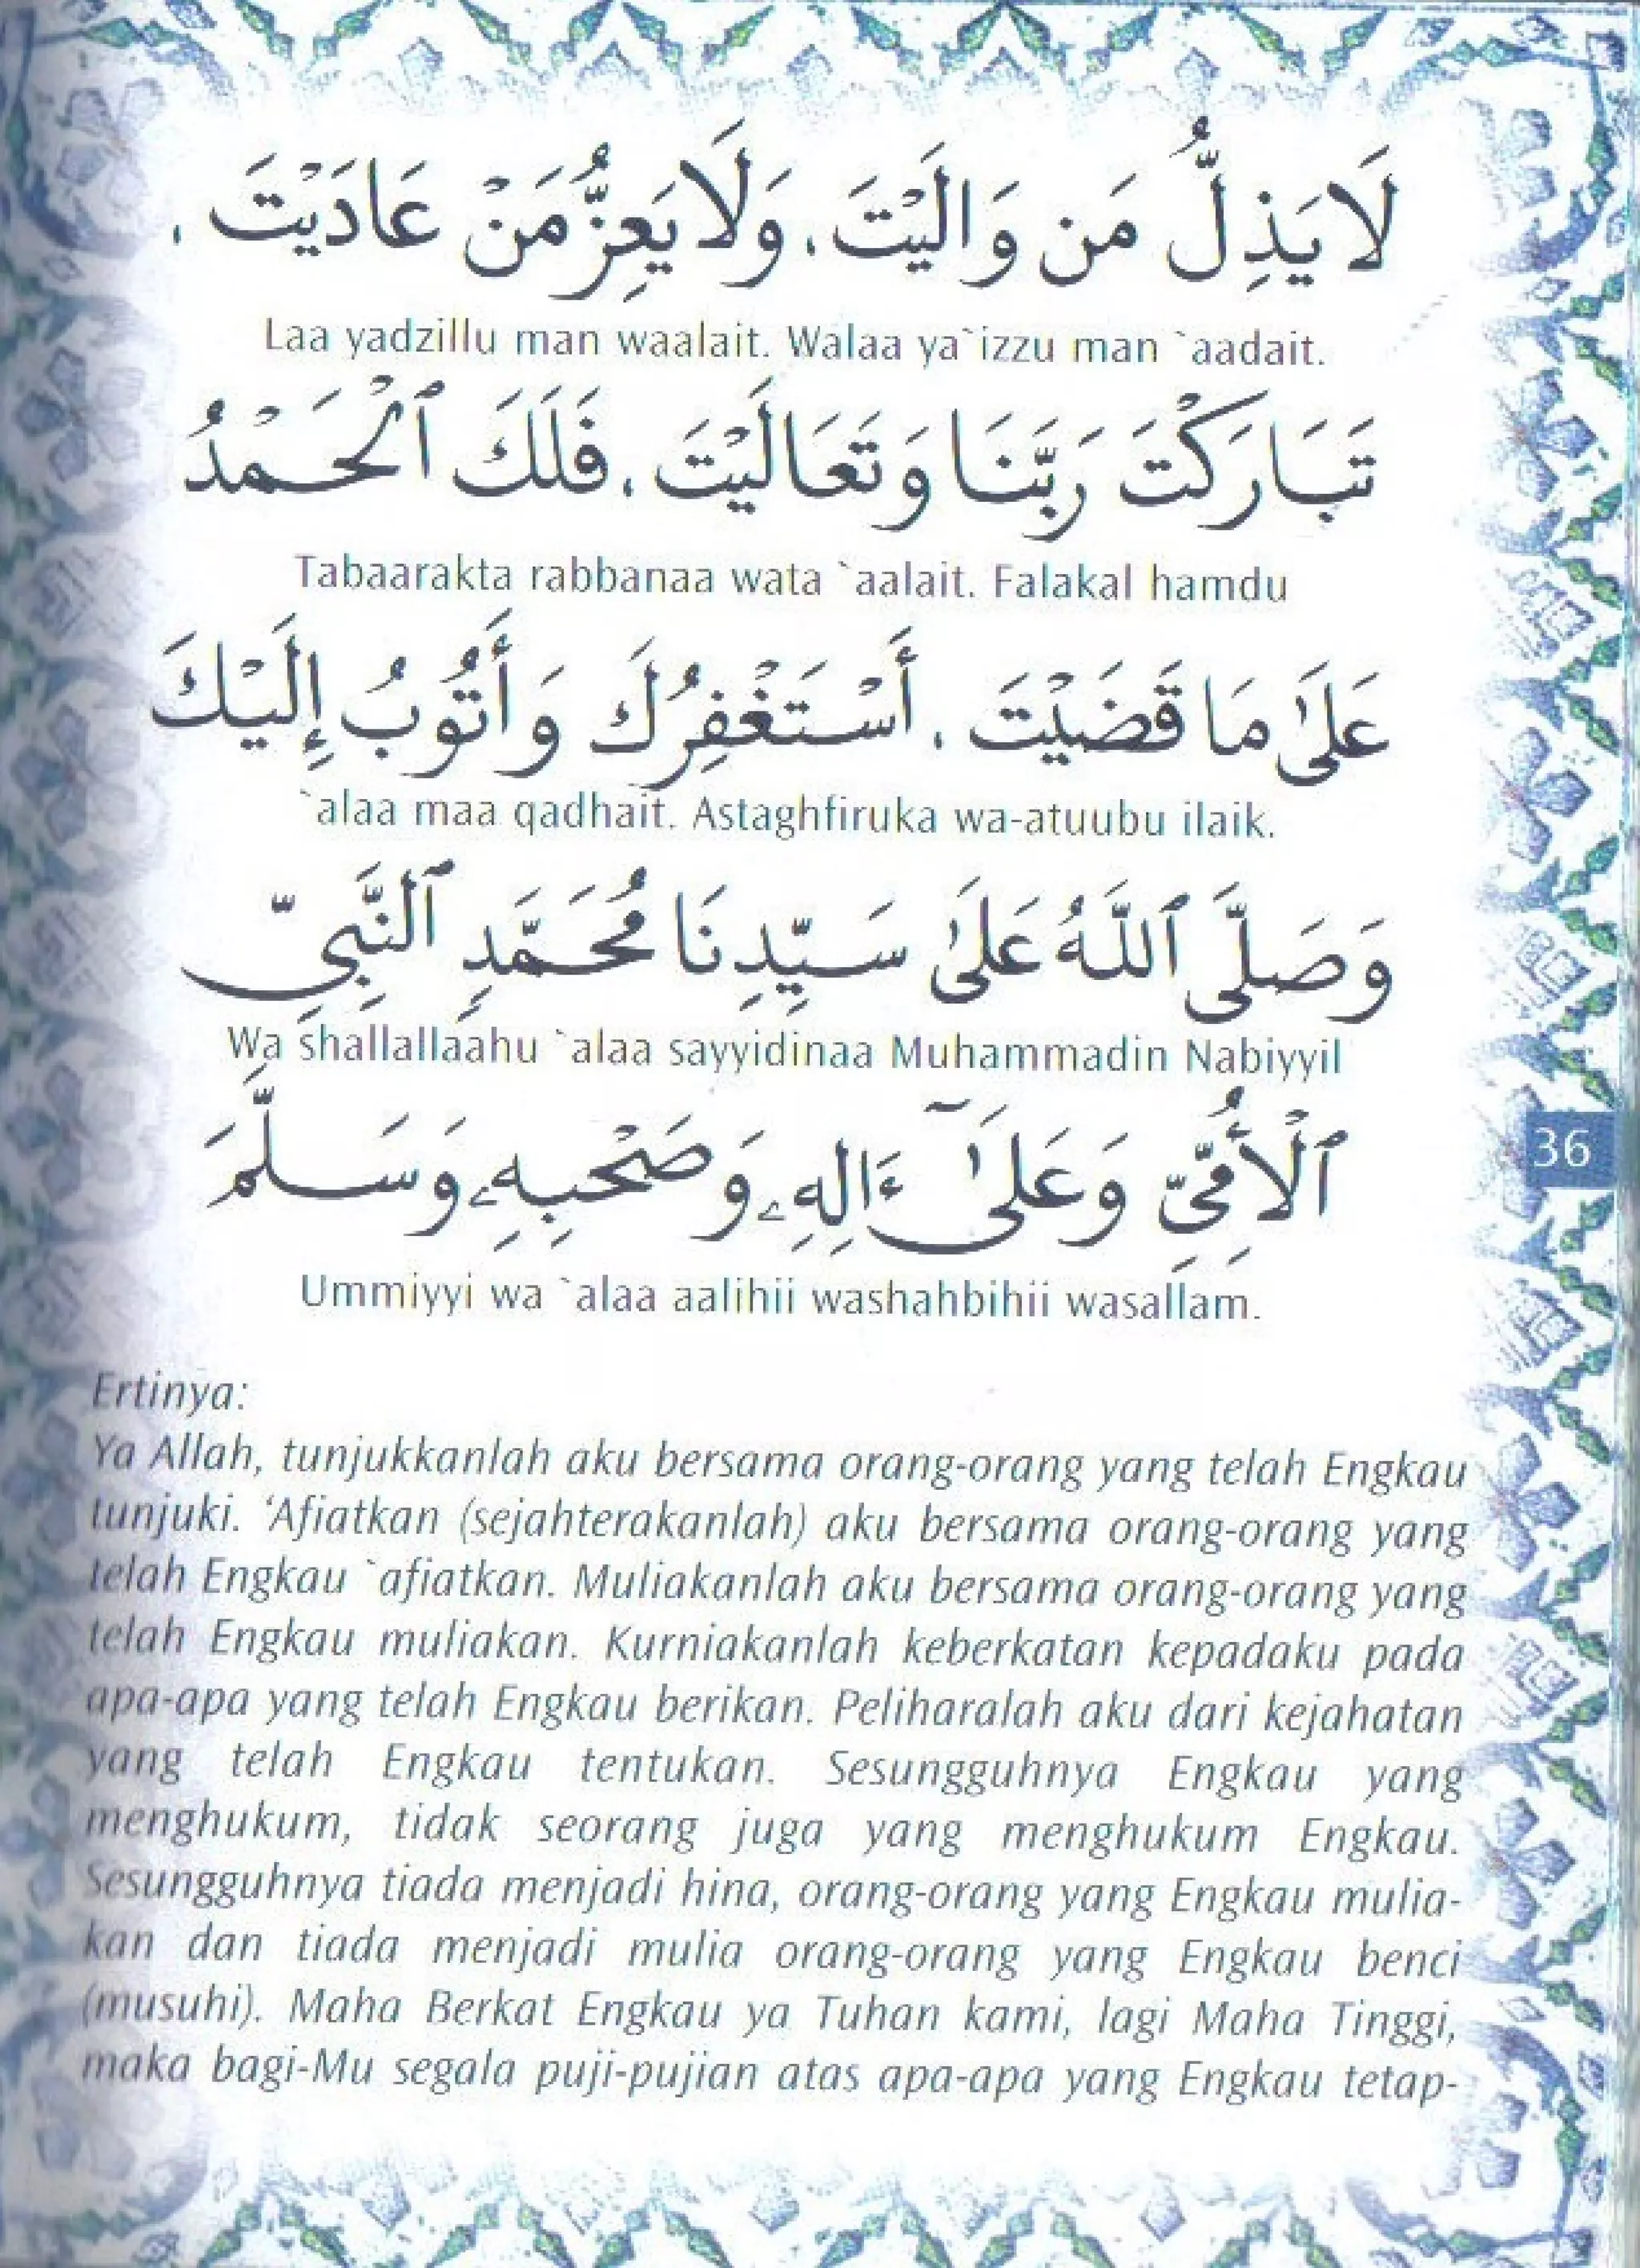 لَا يَذِلُّ مَن وَالَيْتَ، وَلَا يَعِزُّ مَنْ عَادَيْتَ،
Laa yadzillu man waalait. Walaa ya`izzu man `aadait.
تَبَارَكْتَ رَبَّنَا وَتَعَالَيْتَ، فَلَكَ ٱلْحَمْدُ
Tabaarakta rabbanaa wata `aalait. Falakal hamdu
عَلَىٰ مَا قَضَيْتَ، أَسْتَغْفِرُكَ وَأَتُوبُ إِلَيْكَ
`alaa maa qadhait. Astaghfiruka wa-atuubu ilaik.
وَصَلَّى ٱللَّهُ عَلَىٰ سَيِّدِنَا مُحَمَّدٍ ٱلنَّبِيِّ
Wa shallallaahu `alaa sayyidinaa Muhammadin Nabiyyil
ٱلْأُمِّيِّ وَعَلَىٰٓ ءَالِهِۦ وَصَحْبِهِۦ وَسَلَّمَ
36
Ummiyyi wa `alaa aalihii washahbihii wasallam.
Ertinya:
Ya Allah, tunjukkanlah aku bersama orang-orang yang telah Engkau
tunjuki. ‘Afiatkan (sejahterakanlah) aku bersama orang-orang yang
telah Engkau `afiatkan. Muliakanlah aku bersama orang-orang yang
telah Engkau muliakan. Kurniakanlah keberkatan kepadaku pada
apa-apa yang telah Engkau berikan. Peliharalah aku dari kejahatan
yang telah Engkau tentukan. Sesungguhnya Engkau yang
menghukum, tidak seorang juga yang menghukum Engkau.
Sesungguhnya tiada menjadi hina, orang-orang yang Engkau mulia-
kan dan tiada menjadi mulia orang-orang yang Engkau benci
(musuhi). Maha Berkat Engkau ya Tuhan kami, lagi Maha Tinggi,
maka bagi-Mu segala puji-pujian atas apa-apa yang Engkau tetap-